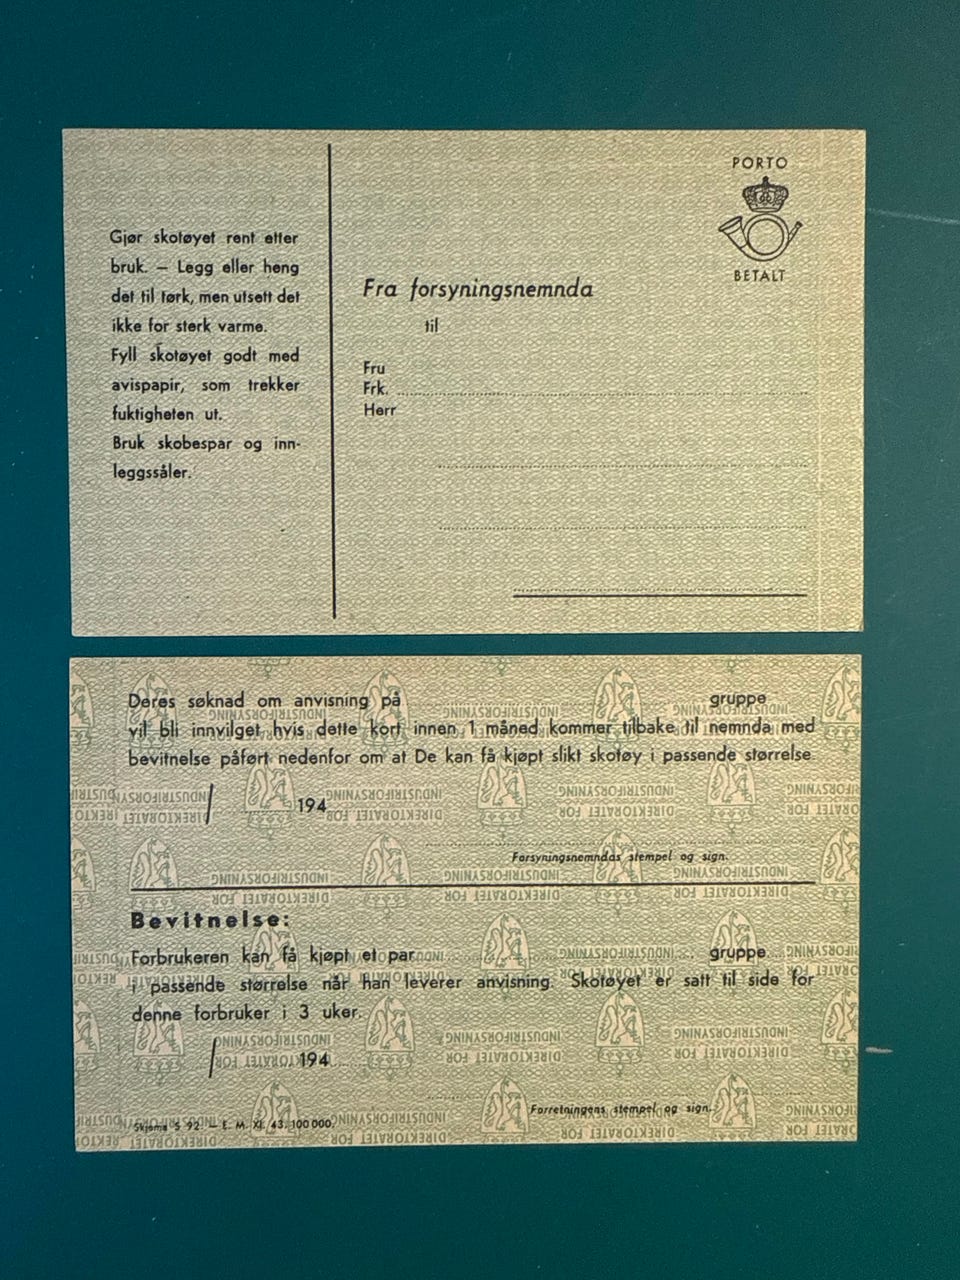 PORTO
BETALT
Gjør skotøyet rent etter
bruk. — Legg eller heng
det til tørk, men utsett det
ikke for sterk varme.
Fyll skotøyet godt med
avispapir, som trekker
fuktigheten ut.
Bruk skobespar og inn-
leggssåler.
Fra forsyningsnemnda
til
Fru
Frk.
Herr
Deres søknad om anvisning på gruppe
vil bli innvilget hvis dette kort innen 1 måned kommer tilbake til nemnda med
bevitnelse påført nedenfor om at De kan få kjøpt slikt skotøy i passende størrelse
/ 194
Forsyningsnemndas stempel og sign.
Bevitnelse:
Forbrukeren kan få kjøpt et par gruppe
i passende størrelse når han leverer anvisning. Skotøyet er satt til side for
denne forbruker i 3 uker.
/ 194
Forretningens stempel og sign.
Skjema S 92. — E. M. XI. 43. 100 000.
DIREKTORATET FOR
INDUSTRIFORSYNING